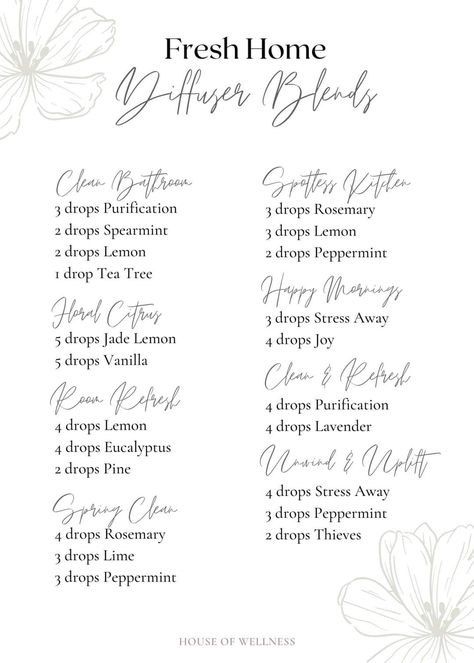 Fresh Home
Diffuser Blends
Clean Bathroom
3 drops Purification
2 drops Spearmint
2 drops Lemon
1 drop Tea Tree
Floral Citrus
5 drops Jade Lemon
5 drops Vanilla
Room Refresh
4 drops Lemon
4 drops Eucalyptus
2 drops Pine
Spring Clean
4 drops Rosemary
3 drops Lime
3 drops Peppermint
Spotless Kitchen
3 drops Rosemary
3 drops Lemon
2 drops Peppermint
Happy Mornings
3 drops Stress Away
4 drops Joy
Clean & Refresh
4 drops Purification
4 drops Lavender
Unwind & Uplift
4 drops Stress Away
3 drops Peppermint
2 drops Thieves
HOUSE OF WELLNESS